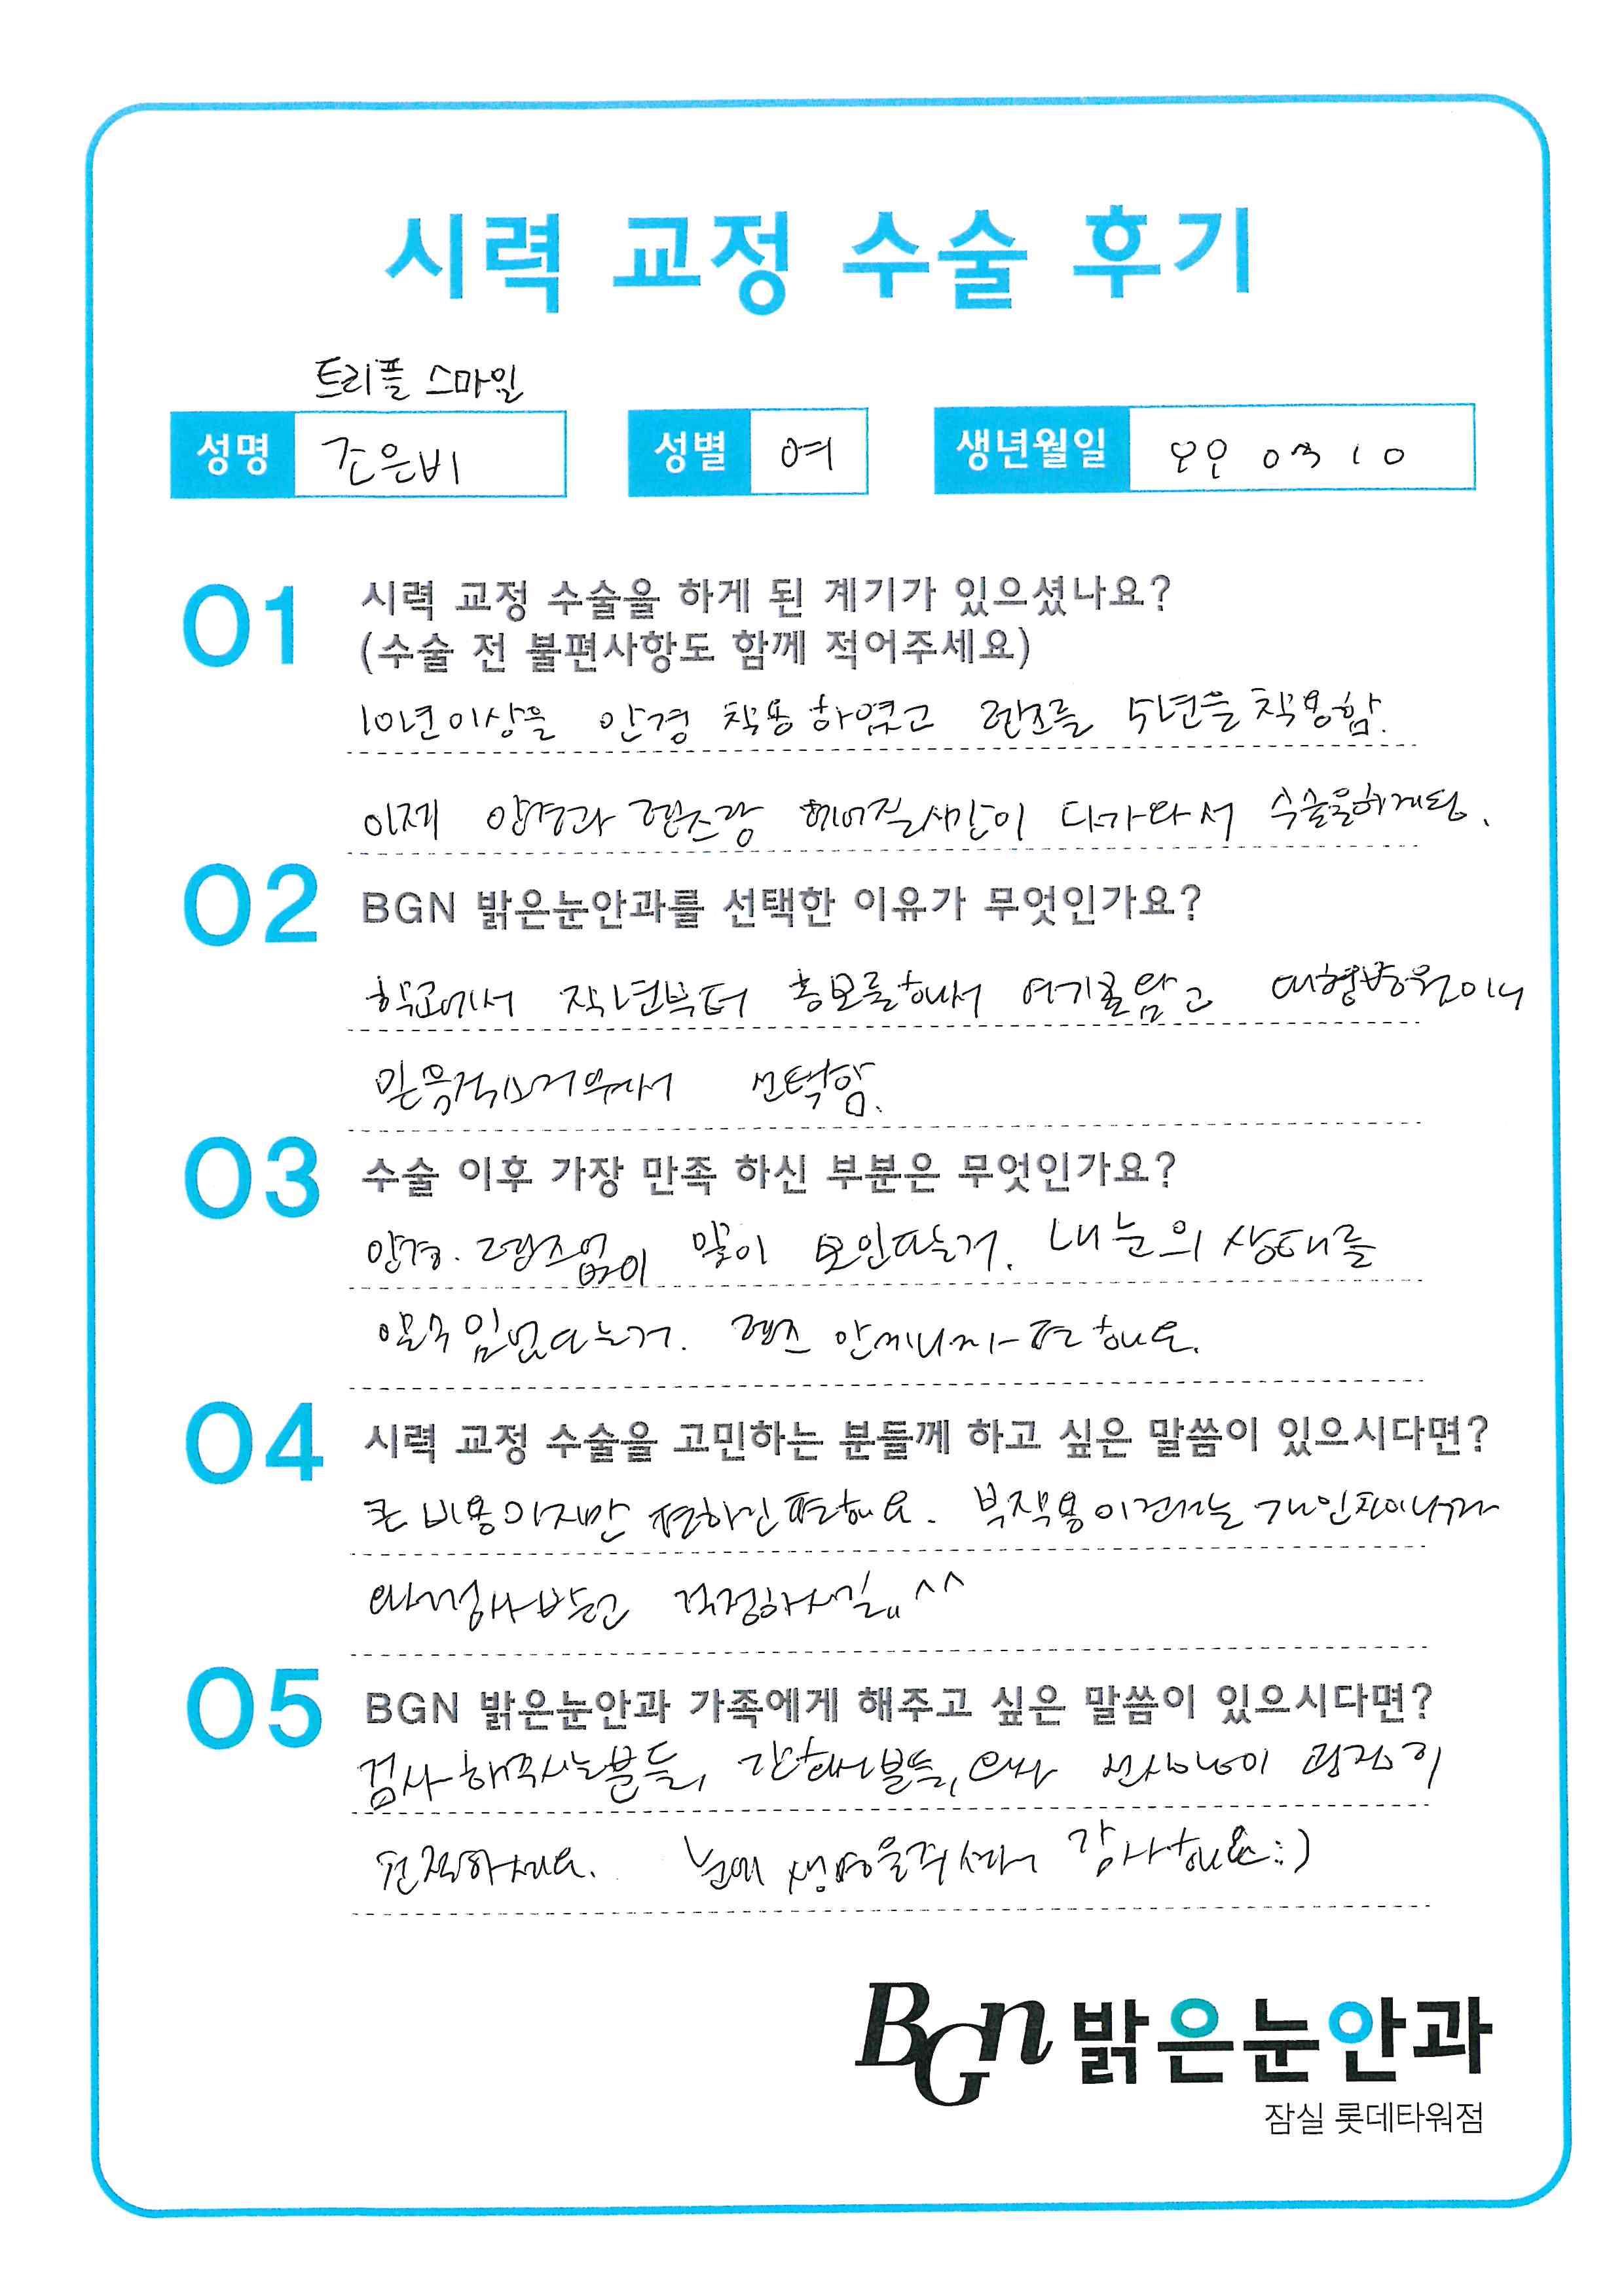 시력 교정 수술 후기
트리플 스마일
성명 조은비 성별 여 생년월일 990310
01 시력 교정 수술을 하게 된 계기가 있으셨나요?
(수술 전 불편사항도 함께 적어주세요)
10년이상을 안경 착용하였고 렌즈를 5년은 착용함.
이제 안경과 렌즈랑 헤어질시간이 다가와서 수술을하게됨.
02 BGN 밝은눈안과를 선택한 이유가 무엇인가요?
학교에서 작년부터 홍보를해서 여기를알고 대형병원이니
믿음직스러워서 선택함.
03 수술 이후 가장 만족 하신 부분은 무엇인가요?
안경. 렌즈없이 많이 보인다는거. 내 눈의 상태를
알수있었다는거. 렌즈 안끼니까 편해요.
04 시력 교정 수술을 고민하는 분들께 하고 싶은 말씀이 있으시다면?
큰 비용이지만 편하긴편해요. 부작용이런거는 개인차이니까
와서검사받고 걱정하시길.. ^^
05 BGN 밝은눈안과 가족에게 해주고 싶은 말씀이 있으시다면?
검사해주시는분들, 간호사분들, 의사 선생님이 굉장히
친절하세요. 눈에 생명을주셔서 감사해요:)
BGn 밝은눈안과
잠실 롯데타워점